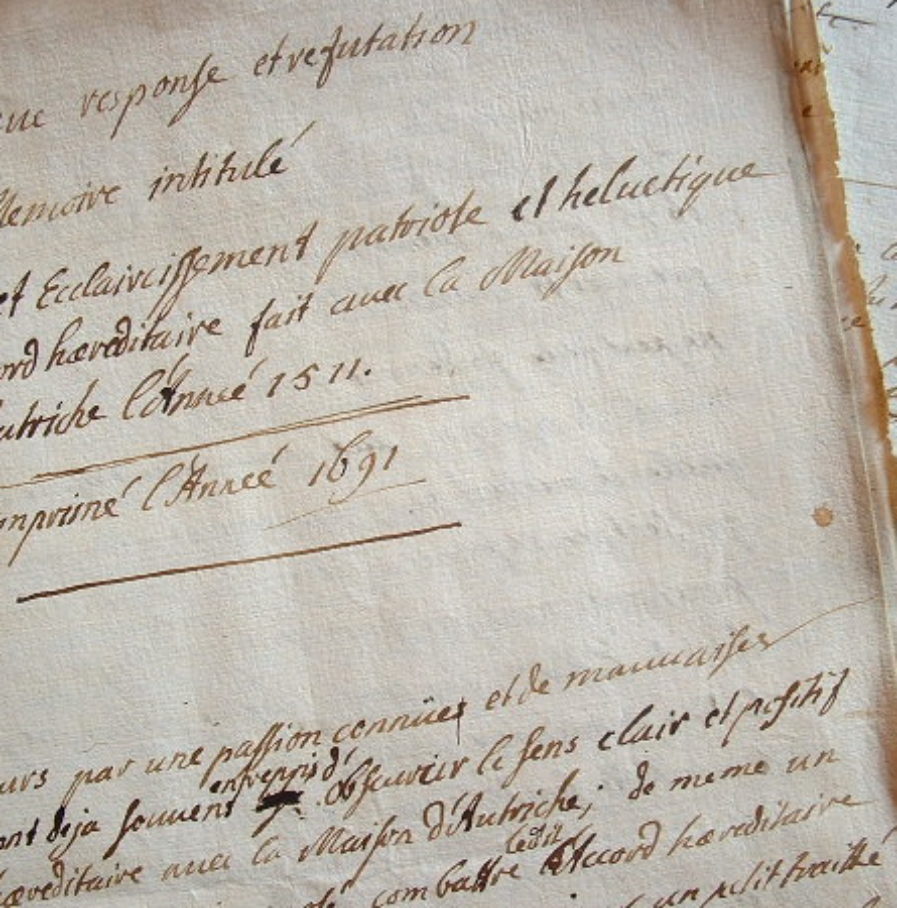 response et refutation
Memoire intitulé
et Ecclaircissement patriote et heluetique
ord hæreditaire fait auec la Maison
utriche l'Anneé 1511.
mprimé l'Anneé 1691
urs par une passion connüe et de mauuaises
ont deja souuent entrepris d'obscurcir le sens clair et positif
hæreditaire auec la Maison d'Autriche; de meme un
combattre ledit Accord hæreditaire
un petit traitté